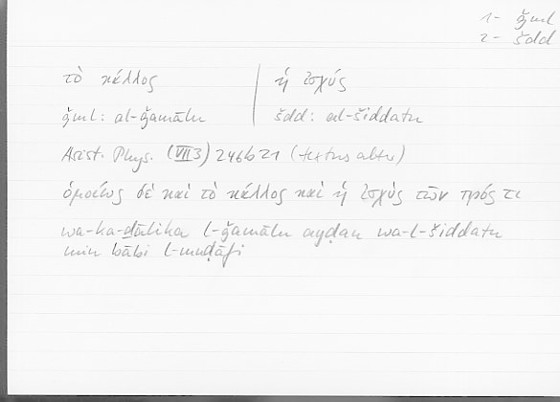 1- ǧml
2- šdd
τὸ κάλλος
ἡ ἰσχύς
ǧml: al-ǧamālu
šdd: aš-šiddatu
Arist. Phys. (VII 3) 246b21 (textus alter)
ὁμοίως δὲ καὶ τὸ κάλλος καὶ ἡ ἰσχὺς τῶν πρός τι
wa-ka-ḏālika l-ǧamālu ayḍan wa-l-šiddatu
min bābi l-muḍāfi